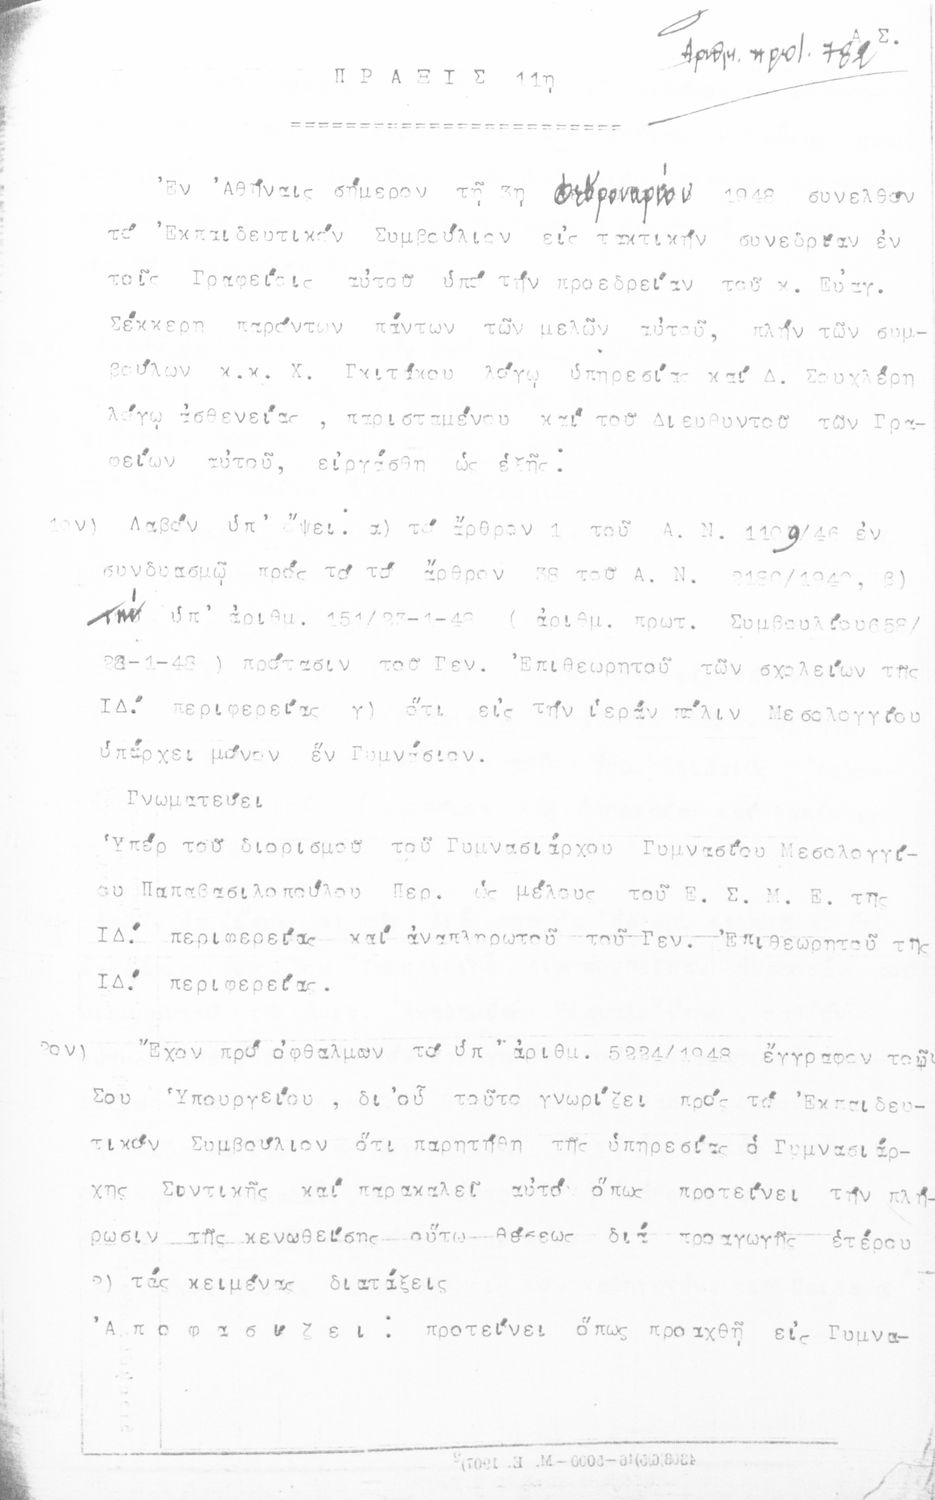 Α Σ.
Αριθμ. πρωτ. 782
Π Ρ Α Ξ Ι Σ 11η
========================
Ἐν Ἀθήναις σήμερον τῇ 3η Φεβρουαρίου 1948 συνελθόν
τό Ἐκπαιδευτικόν Συμβούλιον εἰς τακτικήν συνεδρίαν ἐν
τοῖς Γραφείοις αὐτοῦ ὑπό τήν προεδρείαν τοῦ κ. Εὐαγ.
Σέκκερη παρόντων πάντων τῶν μελῶν αὐτοῦ, πλήν τῶν συμ-
βούλων κ.κ. Χ. Γκιτάκου λόγῳ ὑπηρεσίας καί Δ. Σουχλέρη
λόγῳ ἀσθενείας , παρισταμένου καί τοῦ Διευθυντοῦ τῶν Γρα-
φείων αὐτοῦ, εἰργάσθη ὡς ἑξῆς:
1ον) Λαβόν ὑπ' ὄψει: α) τό ἄρθρον 1 τοῦ Α. Ν. 1109/46 ἐν
συνδυασμῷ πρός το τό ἄρθρον 38 τοῦ Α. Ν. 2180/1940, β)
τήν ὑπ' ἀριθμ. 151/23-1-48 ( ἀριθμ. πρωτ. Συμβουλίου658/
28-1-48 ) πρότασιν τοῦ Γεν. Ἐπιθεωρητοῦ τῶν σχολείων τῆς
ΙΔ΄ περιφερείας γ) ὅτι εἰς τήν ἱεράν πόλιν Μεσολογγίου
ὑπάρχει μόνον ἕν Γυμνάσιον.
Γνωματεύει
Ὑπέρ τοῦ διορισμοῦ τοῦ Γυμνασιάρχου Γυμνασίου Μεσολογγί-
ου Παπαβασιλοπούλου Περ. ὡς μέλους τοῦ Ε. Σ. Μ. Ε. της
ΙΔ΄ περιφερείας καί ἀναπληρωτοῦ τοῦ Γεν. Ἐπιθεωρητοῦ τῆς
ΙΔ΄ περιφερείας.
2ον) Ἔχον πρό ὀφθαλμῶν τό ὑπ' ἀριθμ. 5224/1948 ἔγγραφον τοῦ
Σου Ὑπουργείου , δι'οὗ τοῦτο γνωρίζει πρός τό Ἐκπαιδευ-
τικόν Συμβούλιον ὅτι παρητήθη τῆς ὑπηρεσίας ὁ Γυμνασιάρ-
χης Σιντικῆς καί παρακαλεῖ αὐτό ὅπως προτείνει τήν πλή-
ρωσιν τῆς κενωθείσης οὕτω θέσεως διά προαγωγῆς ἑτέρου
2) τάς κειμένας διατάξεις
Ἀ π ο φ α σ ί ζ ε ι : προτείνει ὅπως προαχθῇ εἰς Γυμνα-